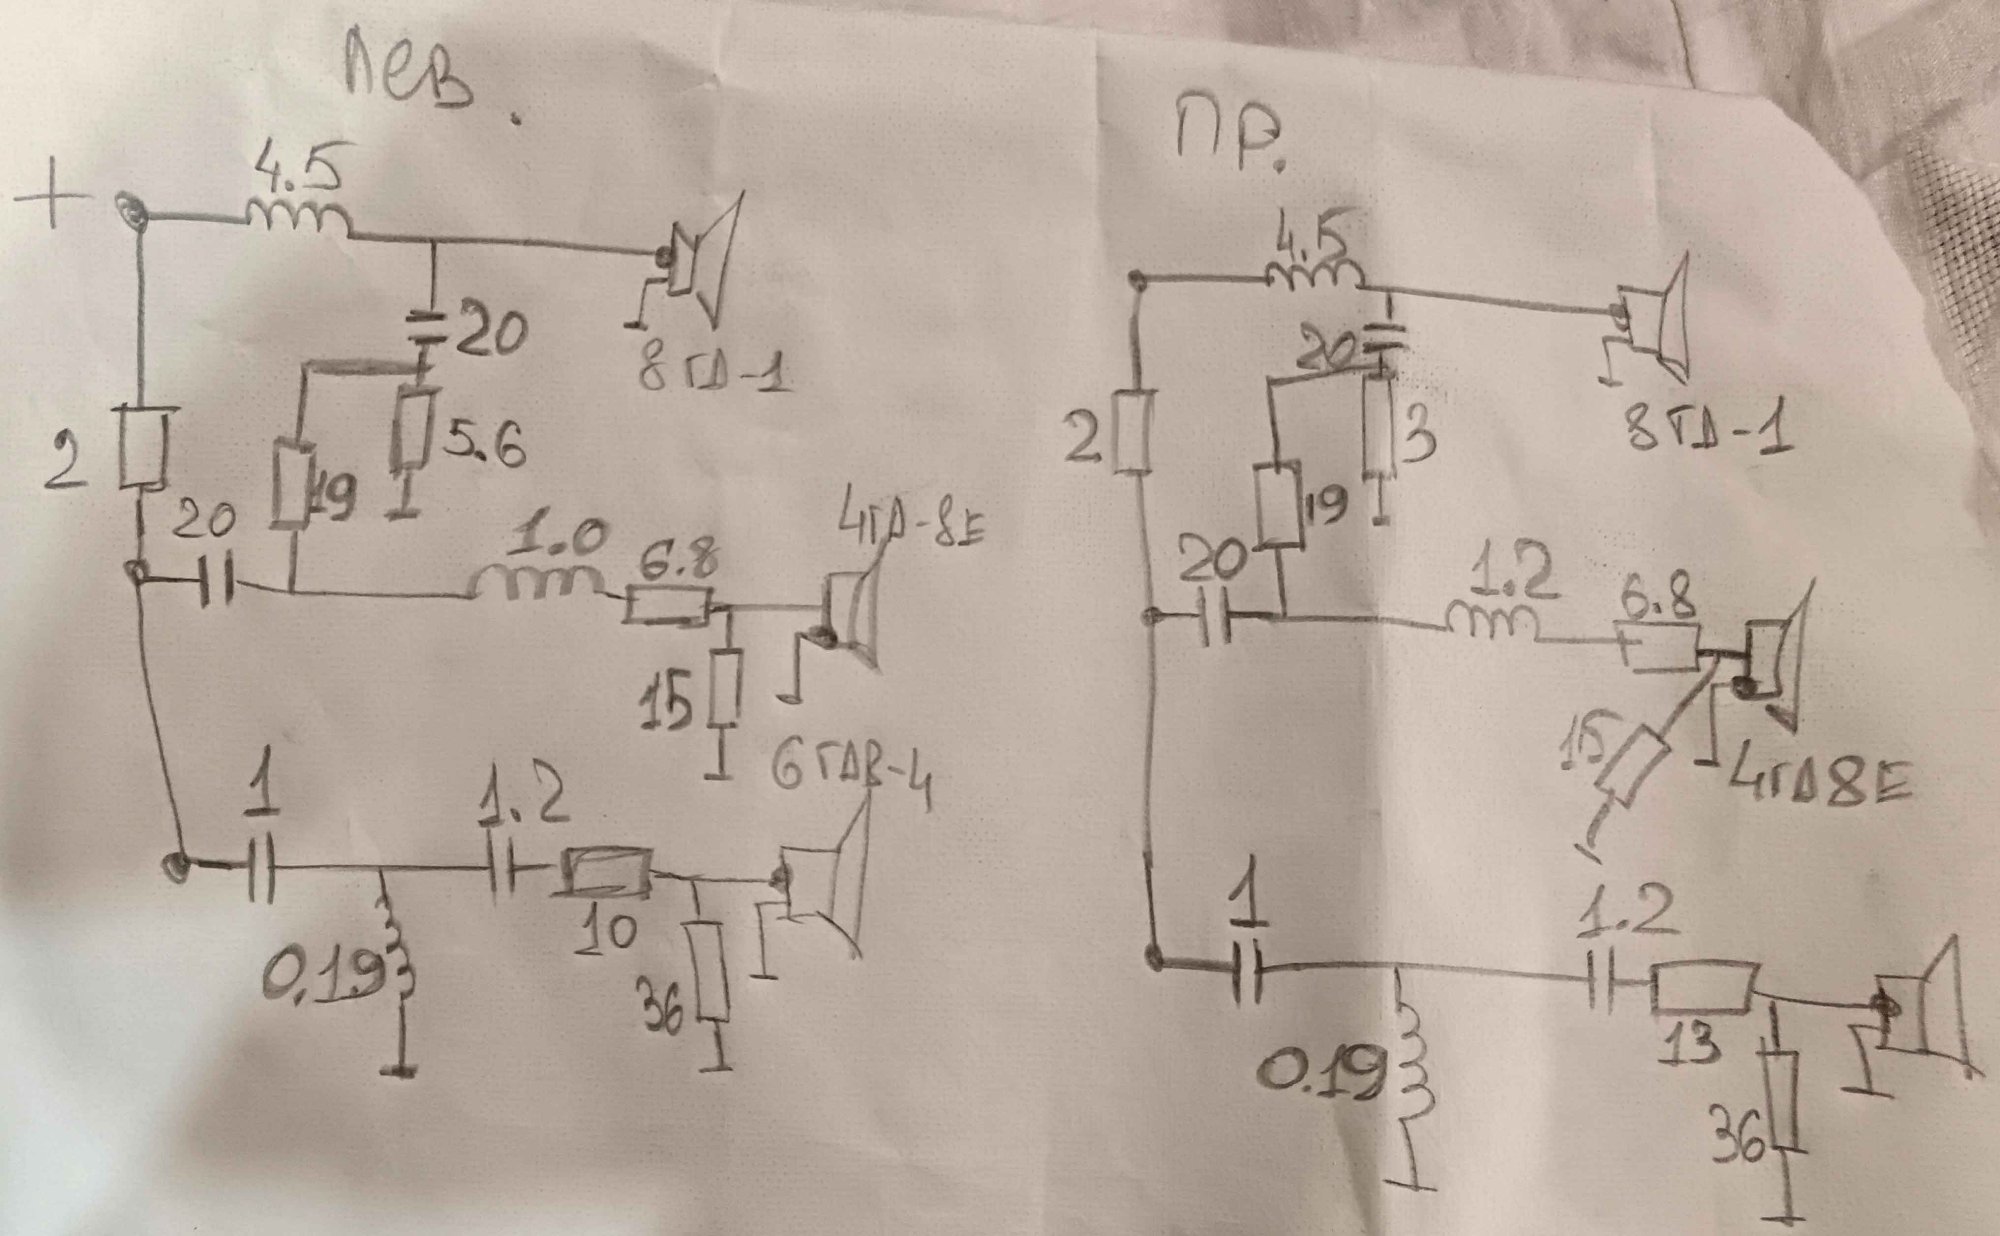 лев.
+
4.5
20
8ГД-1
2
5.6
19
20
1.0
6.8
4ГД-8Е
15
6ГДВ-4
1
1.2
10
0.19
36
ПР.
4.5
20
8ГД-1
2
3
19
20
1.2
6.8
15
4ГД8Е
1
1.2
13
0.19
36